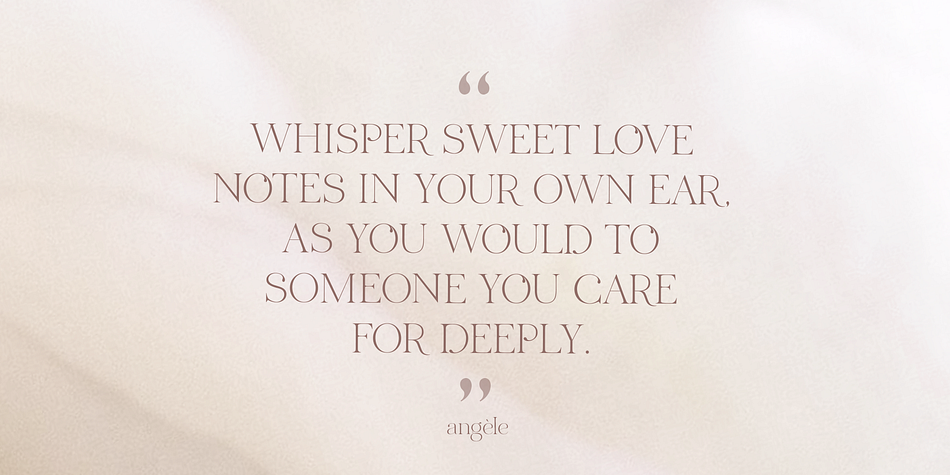 “
WHISPER SWEET LOVE
NOTES IN YOUR OWN EAR,
AS YOU WOULD TO
SOMEONE YOU CARE
FOR DEEPLY.
”
angèle